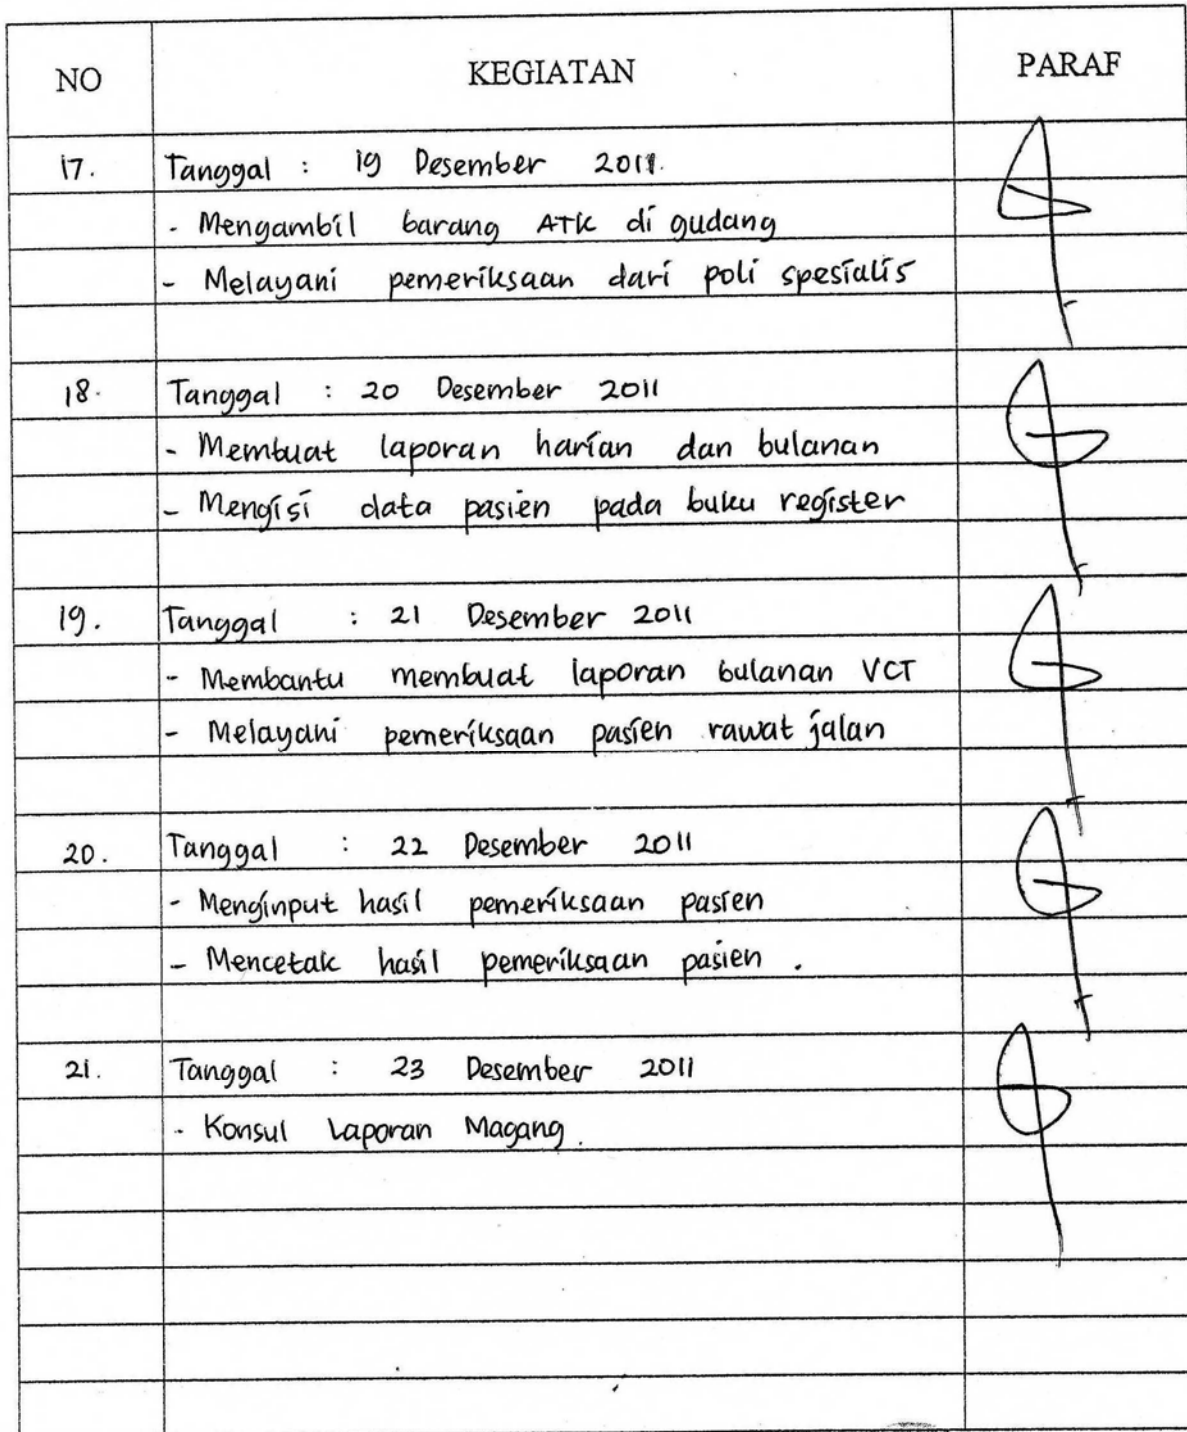 NO KEGIATAN PARAF
17. Tanggal : 19 Desember 2011.
- Mengambil barang ATK di gudang
- Melayani pemeriksaan dari poli spesialis
18. Tanggal : 20 Desember 2011
- Membuat laporan harian dan bulanan
- Mengisi data pasien pada buku register
19. Tanggal : 21 Desember 2011
- Membantu membuat laporan bulanan VCT
- Melayani pemeriksaan pasien rawat jalan
20. Tanggal : 22 Desember 2011
- Menginput hasil pemeriksaan pasien
- Mencetak hasil pemeriksaan pasien .
21. Tanggal : 23 Desember 2011
- Konsul Laporan Magang.